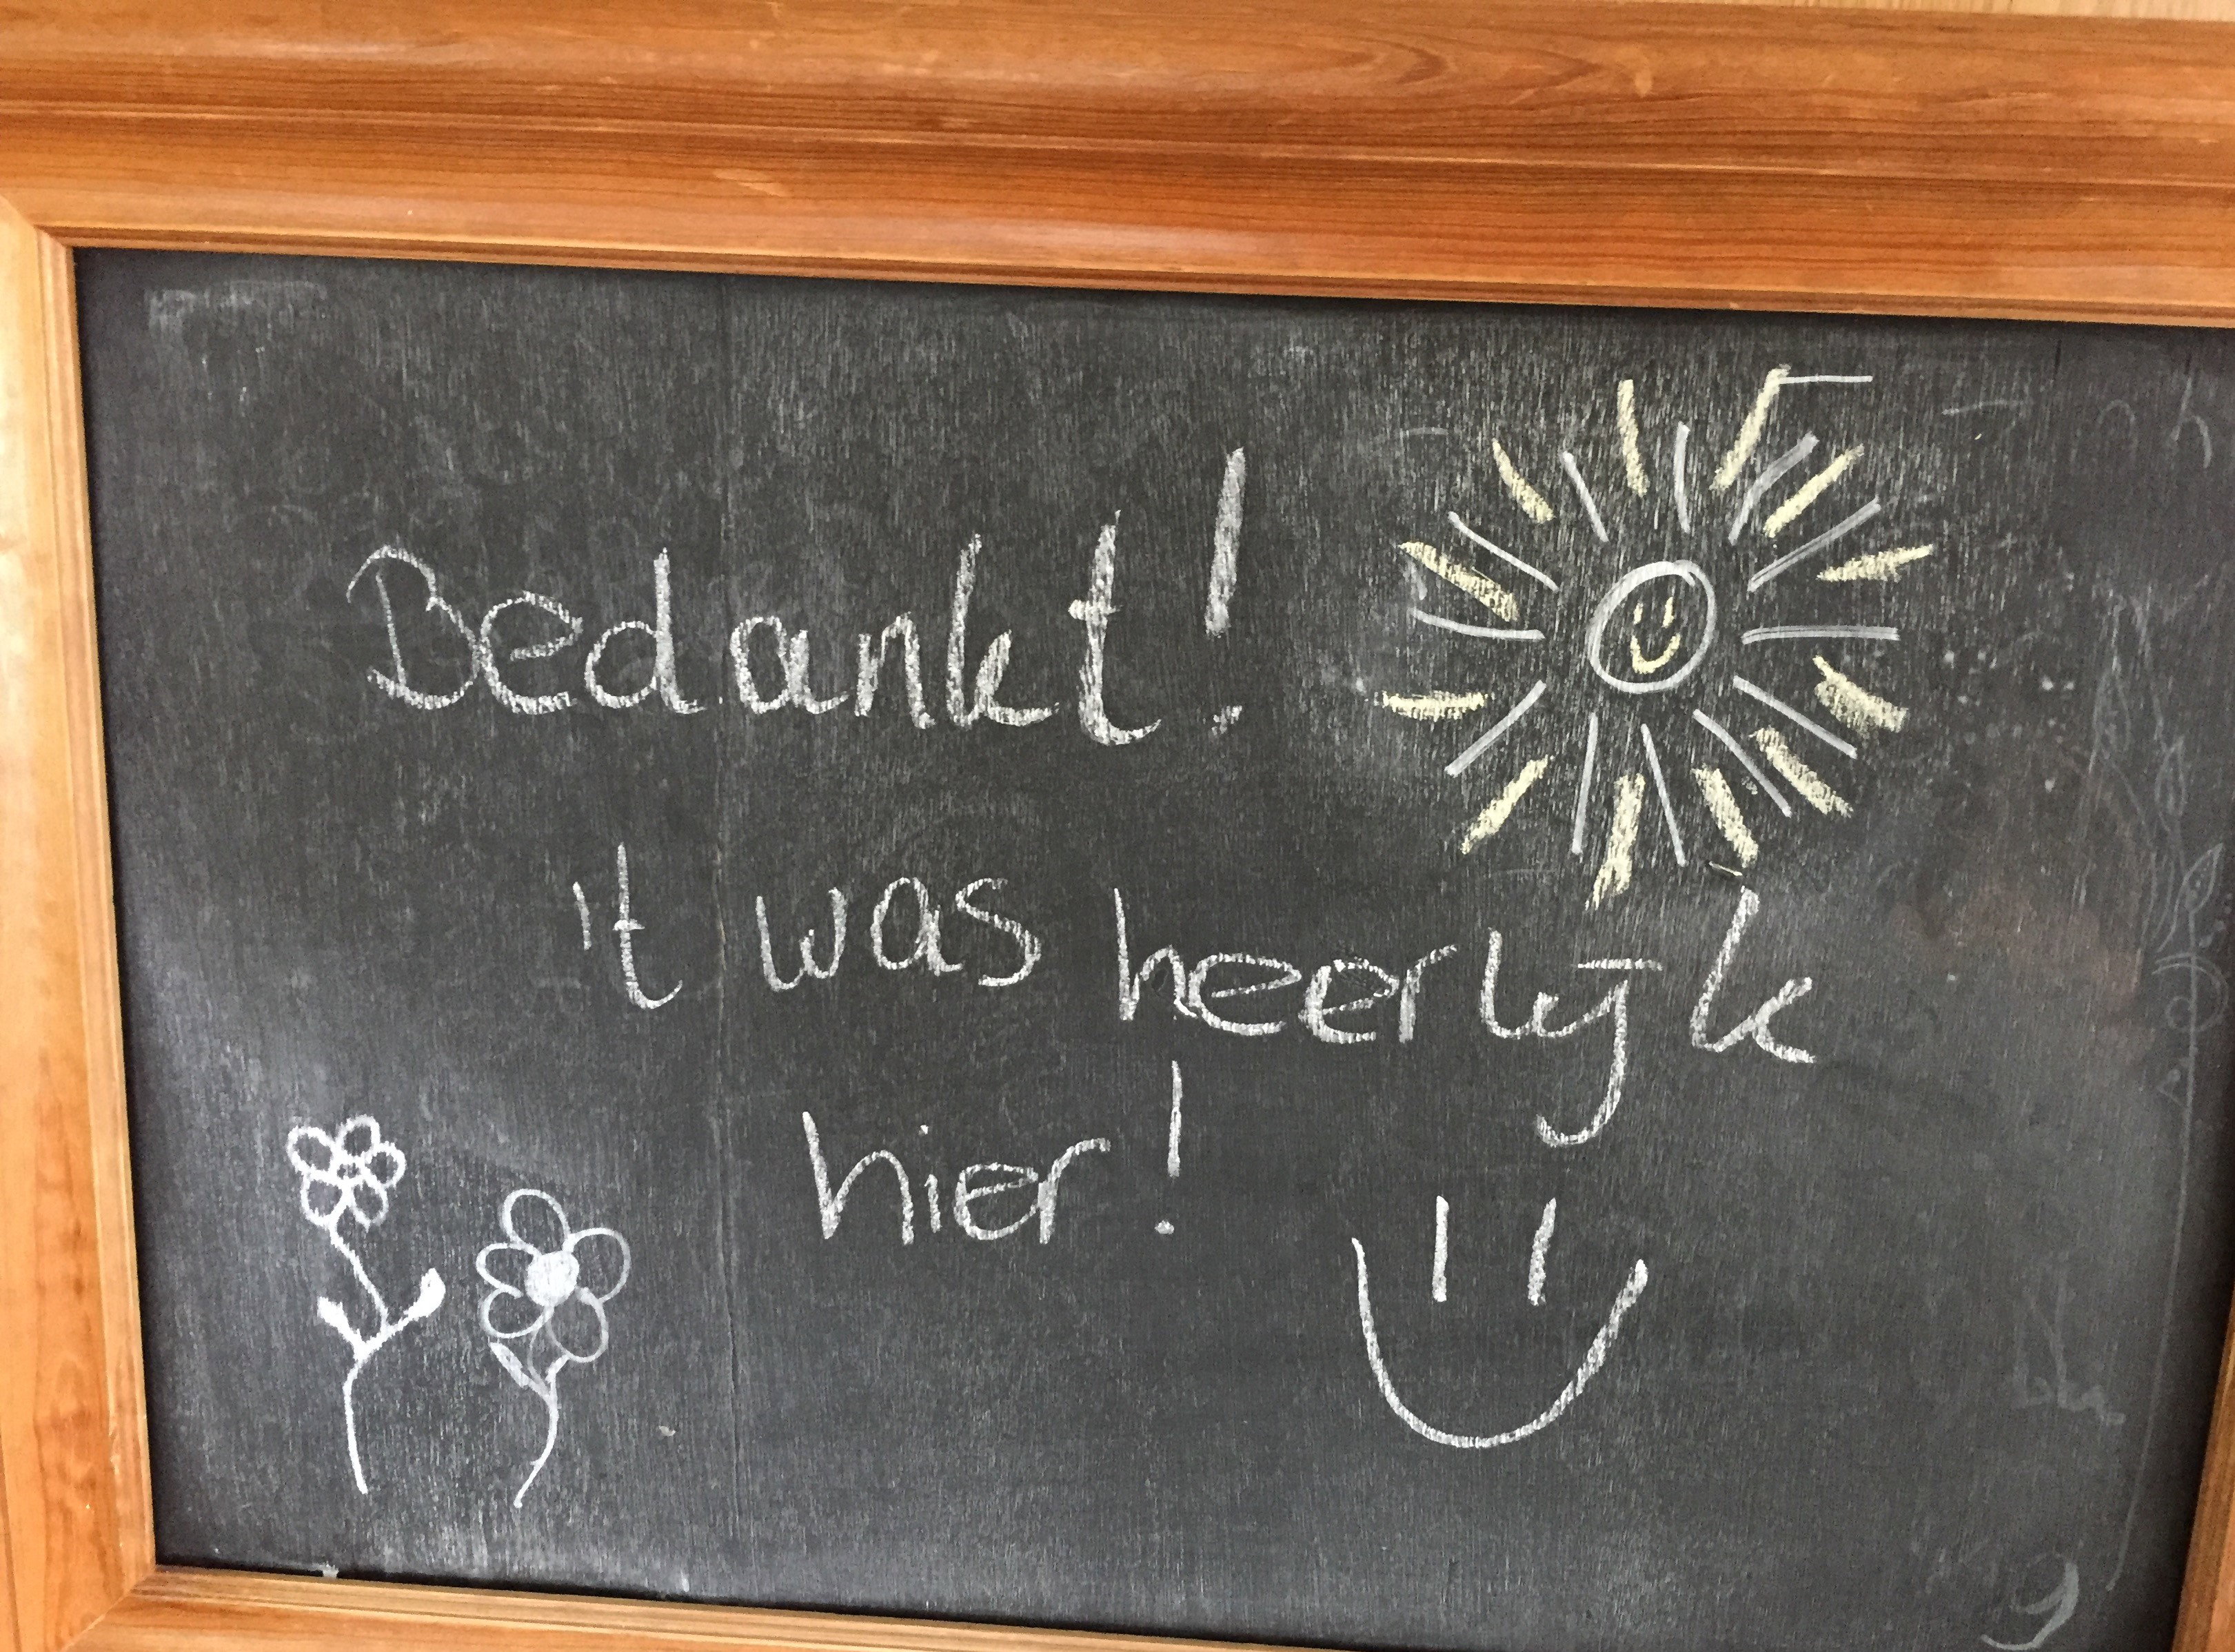 Bedankt!
't was heerlijk
hier!